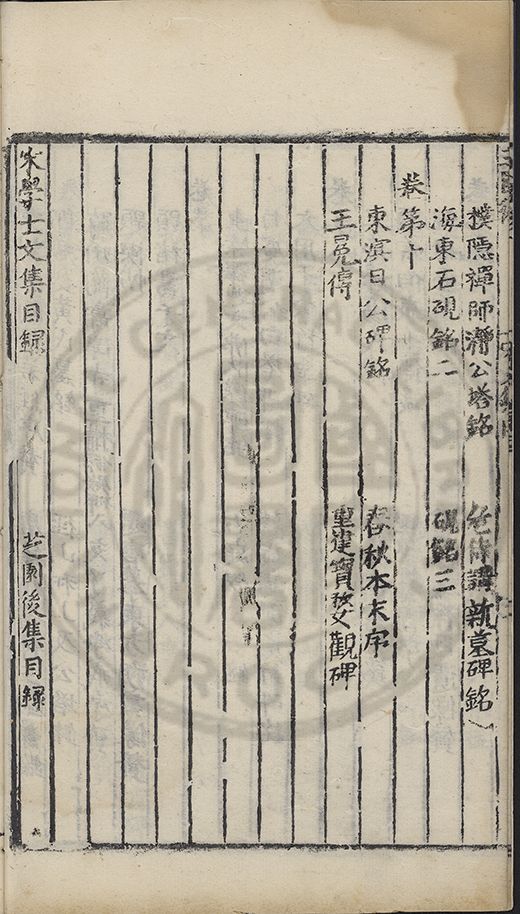 樸隱禪師瀞公塔銘　新墓碑銘
海東石硯銘二　硯銘三
卷第十
東溟日公碑銘　春秋本末序
王冕傳　重建寶婺觀碑
宋學士文集目録　芝園後集目録